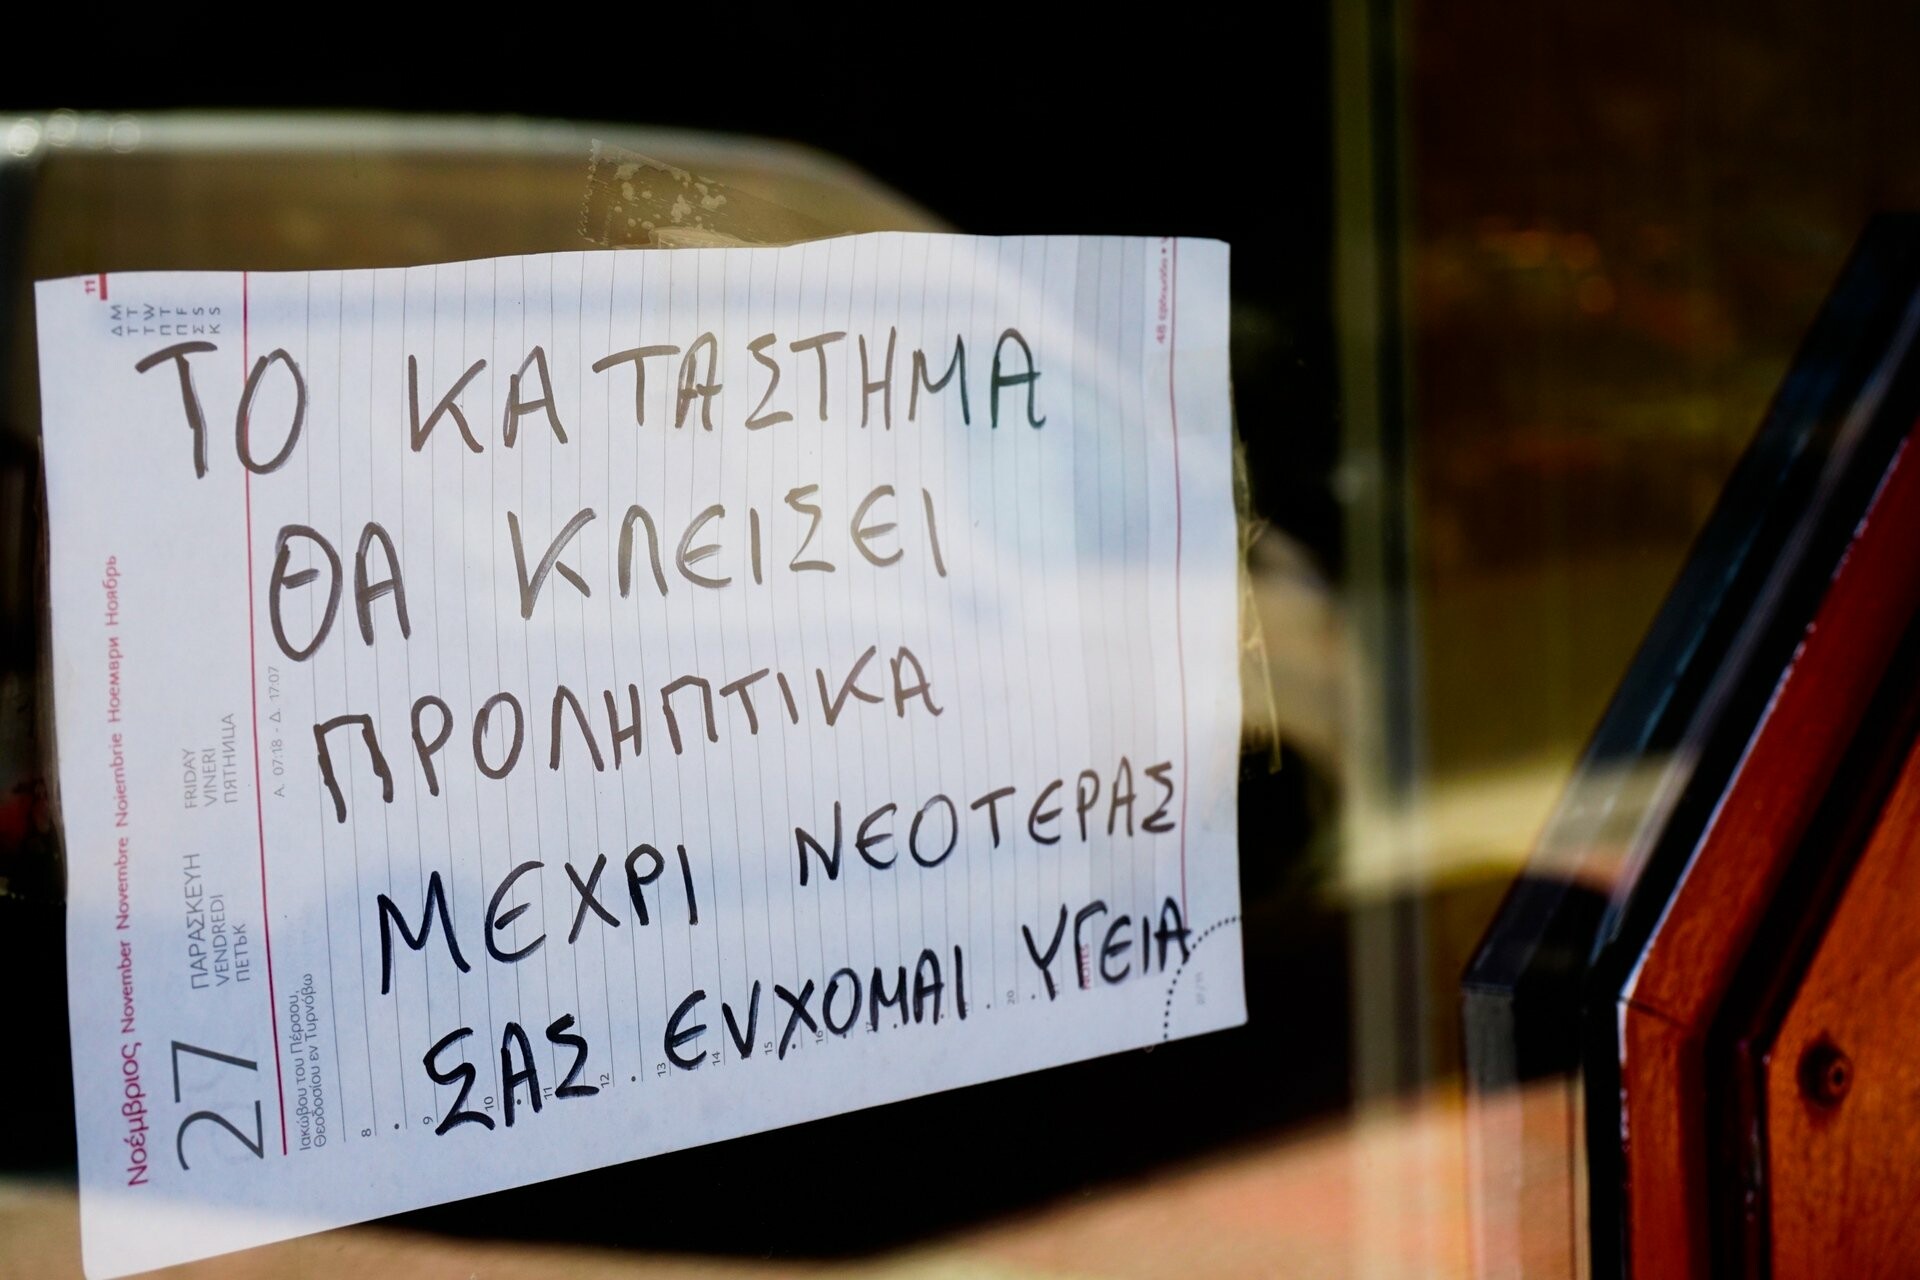 ΤΟ ΚΑΤΑΣΤΗΜΑ
ΘΑ ΚΛΕΙΣΕΙ
ΠΡΟΛΗΠΤΙΚΑ
ΜΕΧΡΙ ΝΕΟΤΕΡΑΣ
ΣΑΣ ΕΥΧΟΜΑΙ ΥΓΕΙΑ
11
Δ Τ Τ Π Π Σ Κ
M T W T F S S
Νοέμβριος November Novembre Noiembrie Ноември Ноябрь
27
ΠΑΡΑΣΚΕΥΗ FRIDAY
VENDREDI VINERI
ПЕТЪК ПЯТНИЦА
Α. 07:18 - Δ. 17:07
Ιακώβου του Πέρσου,
Θεοδοσίου εν Τυρνόβω
8
9
10
11
12
13
14
15
16
17
20
NOTES
48 εβδομάδα